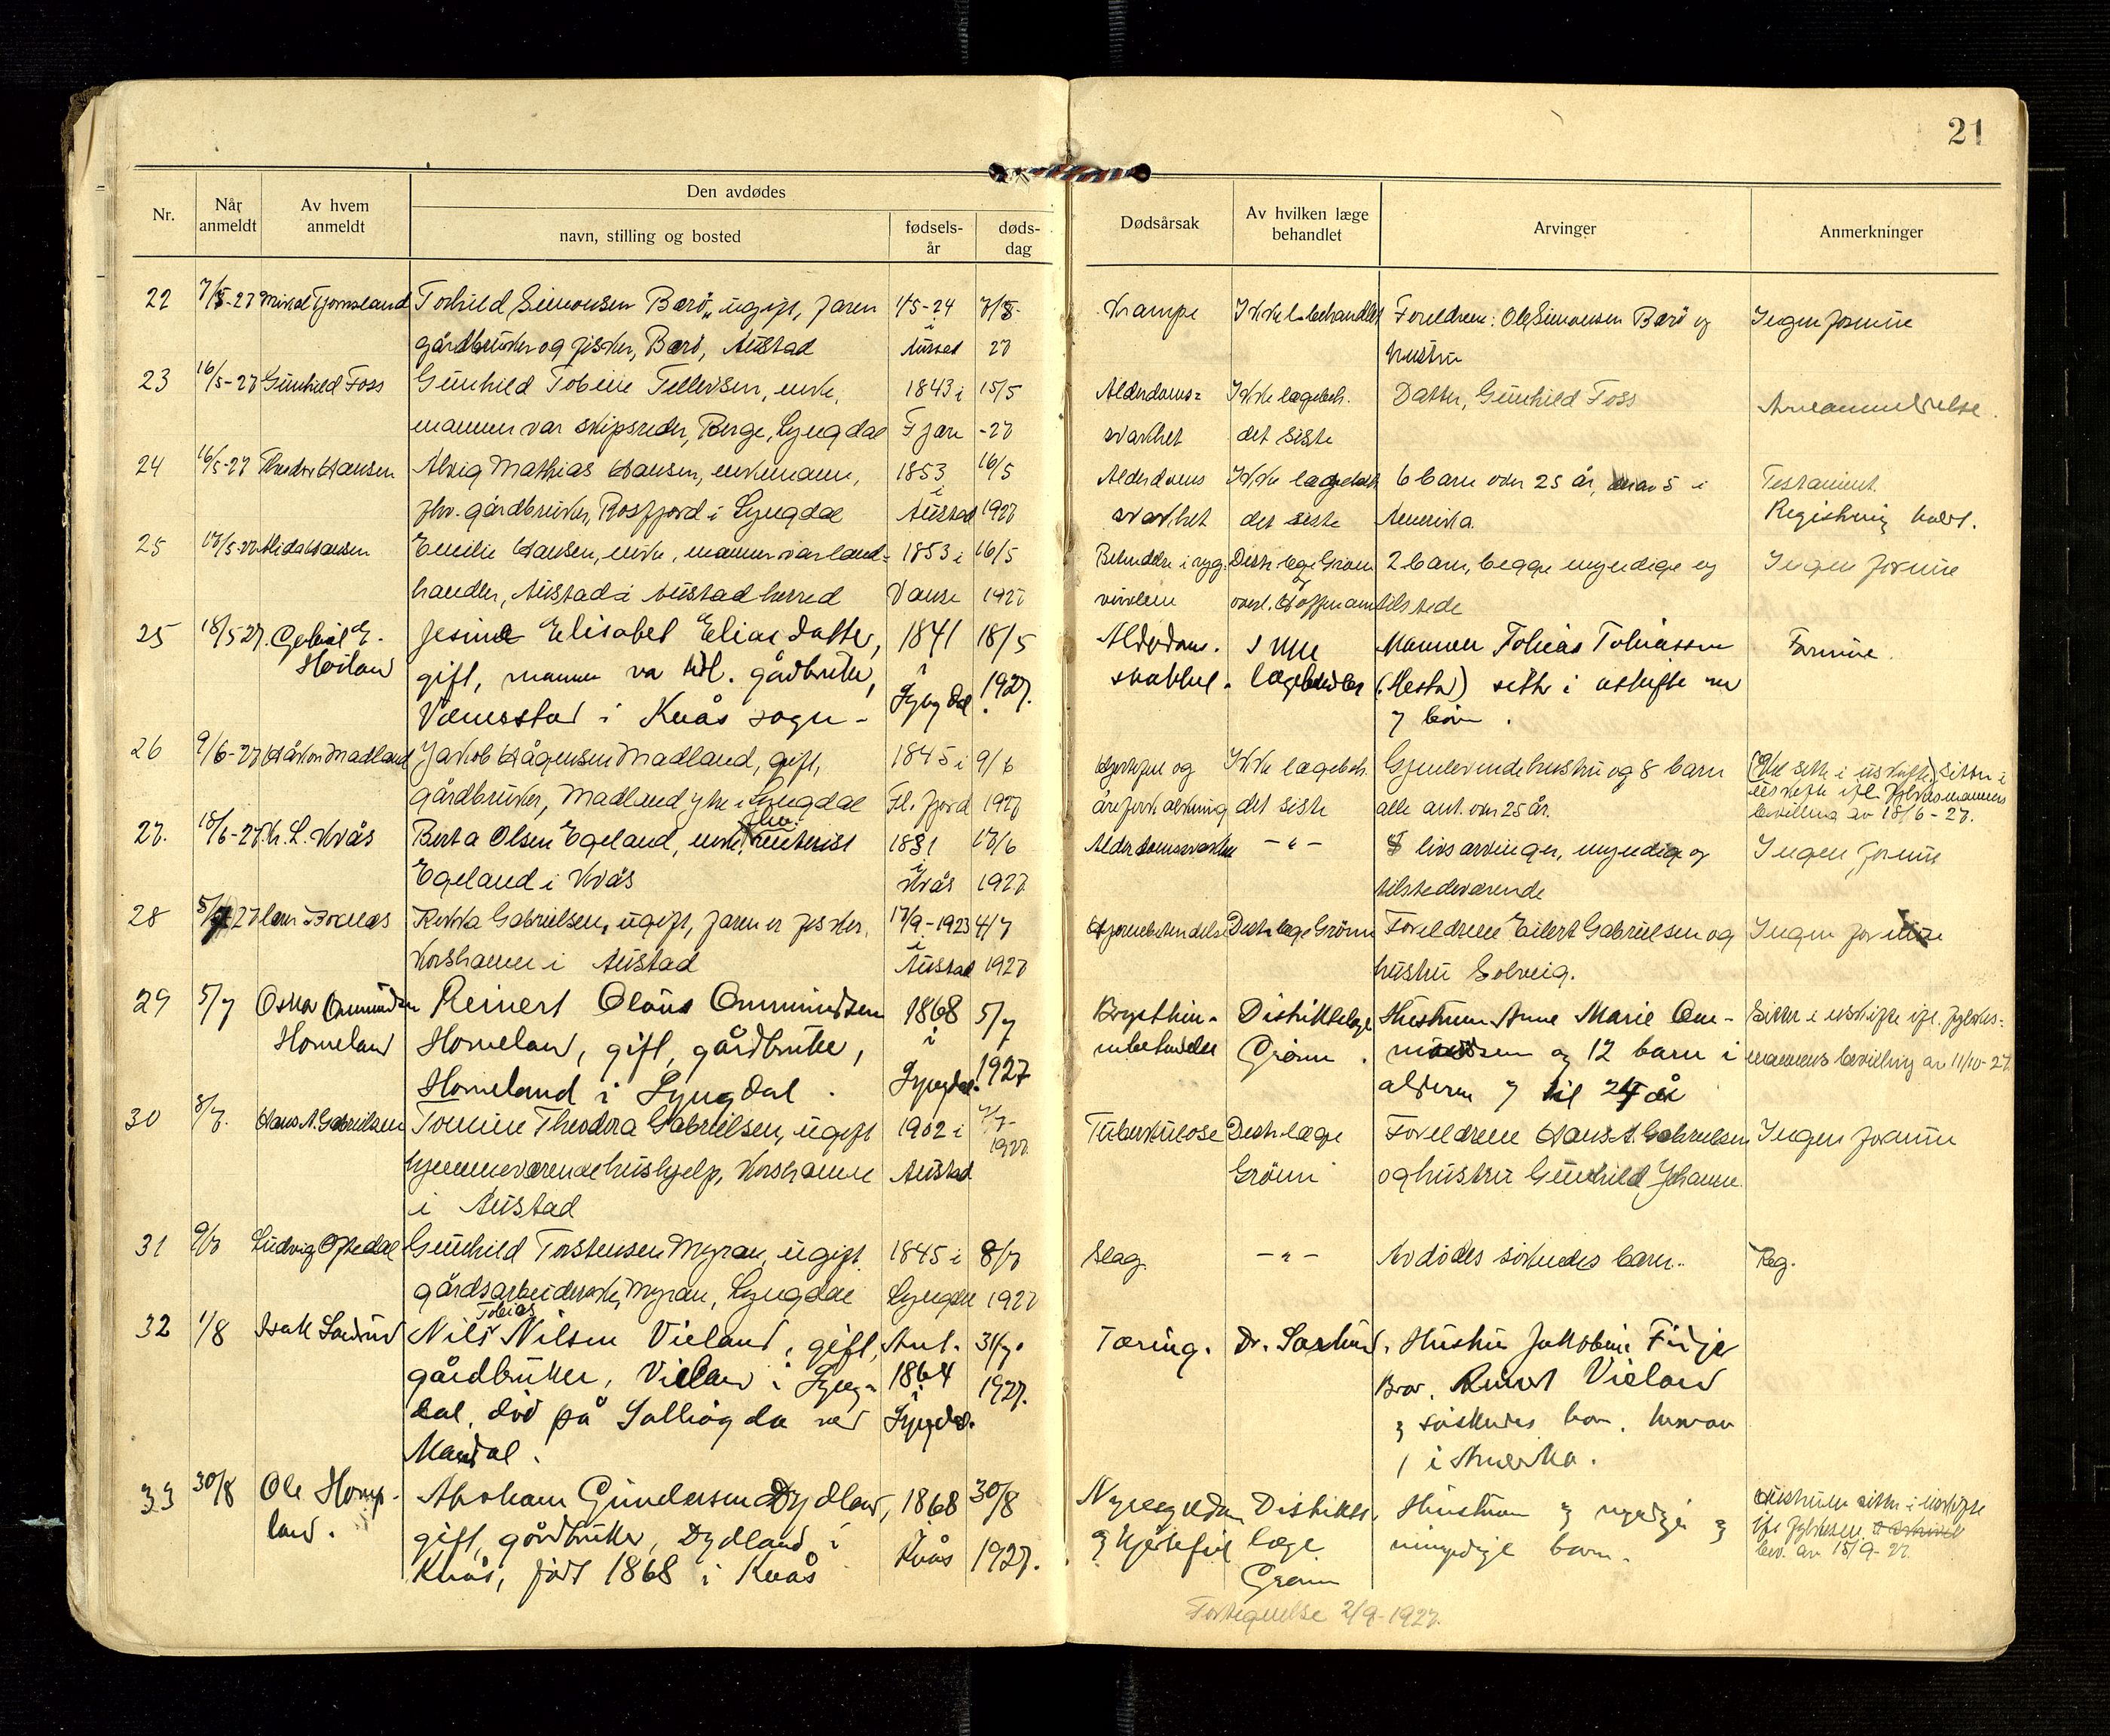 21
Nr.
Når anmeldt
Av hvem anmeldt
Den avdødes
navn, stilling og bosted
fødsels-år
døds-dag
Dødsårsak
Av hvilken læge behandlet
Arvinger
Anmerkninger
22 7/5-27 Torhild Simonsen Barö, ugift, faren 1/5-24 7/5- Krampe Ikke l.behandlet Foreldrene: Ole Simonsen Barö og Ingen formue
gårdbruker og fisker, Barö, Austad i Austad 27 hustru
23 16/5-27 Gunhild Foss Gunhild Tobine Tellefsen, enke, 1843 i 15/5 Alderdoms- Ikke lægebeh. Datter, Gunhild Foss Arveanmeldelse.
mannen var skipsreder, Berge, Lyngdal -27 svakhet det siste
24 16/5-27 Theodor Hansen Mathias Hansen, enkemann, 1853 16/5 Alderdoms Ikke lægebeh. 6 barn over 25 år, 5 i Testament.
fhv. gårdbruker, Rosfjord i Lyngdal i Austad 1927 svakhet det siste Amerika. Registrering holdt.
25 17/5-27 Alida Hansen Emilie Hansen, enke, mannen var land- 1853 i 16/5 i ryg- Distr.læge Grönn 2 barn, begge myndige og Ingen formue
handler, Austad i Austad herred Vanse 1927 virvlene og overl. Hoffmann tilstede
25 18/5 27. E. Jesine Elisabet Eliasdatter, 1841 18/5 Alderdoms- Ikke Mannen Tobias Tobiassen Formue.
Höiland gift, mannen va gårdbruker, i svakhet. lægebeh. sitter i uskifte
Vamestad i Kvås sogn - Lyngdal 1927. 7 barn.
26 9/6-27 Håkon Madland Jakob Hågensen Madland, gift, 1845 i 9/6 Hjertefeil og Ikke lægebeh. Gjenlevende hustru og 8 barn (Vil sitte i uskifte) Sitter i
gårdbruker, Madland ytre i Lyngdal Fl. fjord 1927 åreforkalkning det siste alle ant. over 25 år. uskifte ifl. fylkesmannens
bevilling av 18/6-27.
27. 18/6-27. L. Kvås Berta Olsen Egeland, enke, fhv. 1831 17/6 Alderdomssvakhet -"- 8 livsarvinger, myndige og Ingen formue
Egeland i Kvås i Kvås 1927 tilstedeværende
28 5/7 27 Rikka Gabrielsen, ugift, faren er fisker, 17/9-1923 4/7 Hjernebetendelse Distr.læge Grönn Foreldrene Eilert Gabrielsen og Ingen formue
Korshamn i Austad i Austad 1927 hustru Solveig.
29 5/7 Oskar Ommundsen Reinert Olaus Ommundsen 1868 5/7 Brysthin- Distriktslæge Hustruen Anne Marie Om- Sitter i uskifte ifl. fylkes-
Homeland Homeland, gift, gårdbruker, i nebetendelse Grönn. mundsen og 12 barn i mannens bevilling av 11/10-27.
Homeland i Lyngdal. Lyngdal. 1927 alderen 7 til 24 år
30 8/7. Hans A. Gabrielsen Tomine Theodora Gabrielsen, ugift 1902 i 7/7- Tuberkulose Distr.læge Foreldrene Hans A. Gabrielsen Ingen formue
hjemmeværende hushjelp, Korshamn Austad 1927. Grönn og hustru Gunhild Johanne.
i Austad
31 9/7 Ludvig Oftedal Gunhild Torstensen Myran, ugift 1845 i 8/7 Slag. -"- Avdödes söskendes barn. Reg.
gårdsarbeiderske, Myran, Lyngdal Lyngdal 1927
32 1/8 Nils Tobias Nilsen Vieland, gift, Ant. 31/7. Tæring. Dr. Hustru Jakobine Fidje
gårdbruker, Vieland i Lyng- 1864 1927. Bror. Vieland
dal, död på Solhögda ved i Lyngdal. og söskendes barn. hvorav
Mandal. 1 i Amerika.
33 30/8 Ole Homp- Abraham Gundersen Dydland, 1868 30/8 Nyresygdom Distrikts- Hustruen og myndige og Hustruen sitter i uskifte
land. gift, gårdbruker, Dydland i Kvås 1927. og hjertefeil læge umyndige barn. ifl. fylkesm.
Kvås, född 1868 i Kvås Grönn bev. av 15/9-27.
Fortegnelse 2/9-1927.